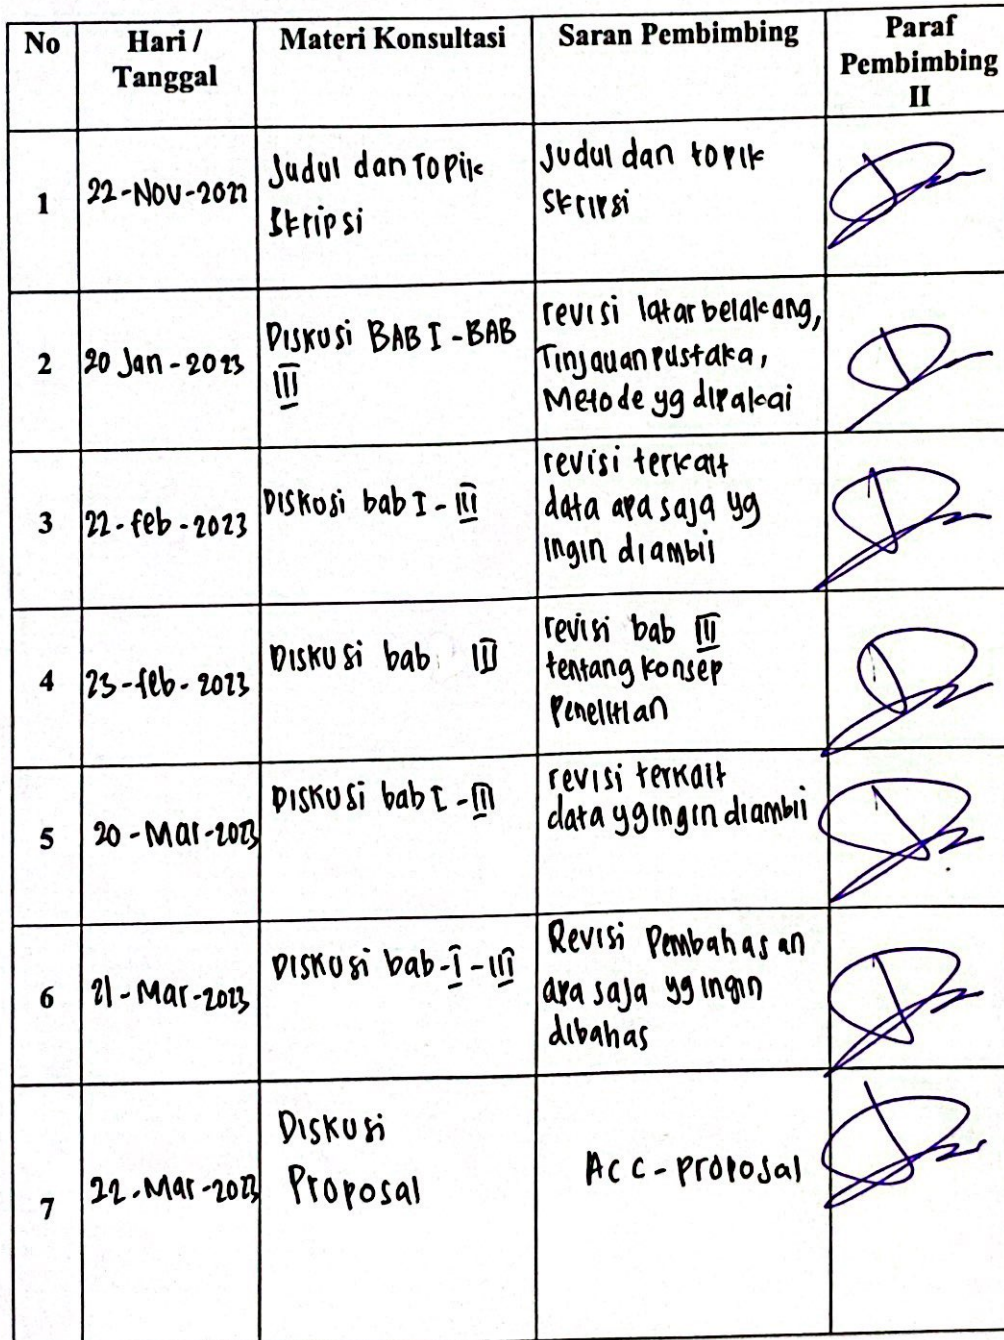 No Hari / Tanggal Materi Konsultasi Saran Pembimbing Paraf Pembimbing II
1 22-Nov-2022 Judul dan Topik Skripsi Judul dan topik Skripsi
2 20 Jan-2023 Diskusi BAB I-BAB III revisi latar belakang, Tinjauan pustaka, Metode yg dipakai
3 22-feb-2023 Diskusi bab I-III revisi terkait data apa saja yg ingin diambil
4 23-feb-2023 Diskusi bab III revisi bab III tentang konsep Penelitian
5 20-Mar-2023 Diskusi bab I-III revisi terkait data yg ingin diambil
6 21-Mar-2023 Diskusi bab-I-III Revisi Pembahasan apa saja yg ingin dibahas
7 22-Mar-2023 Diskusi Proposal Acc-proposal